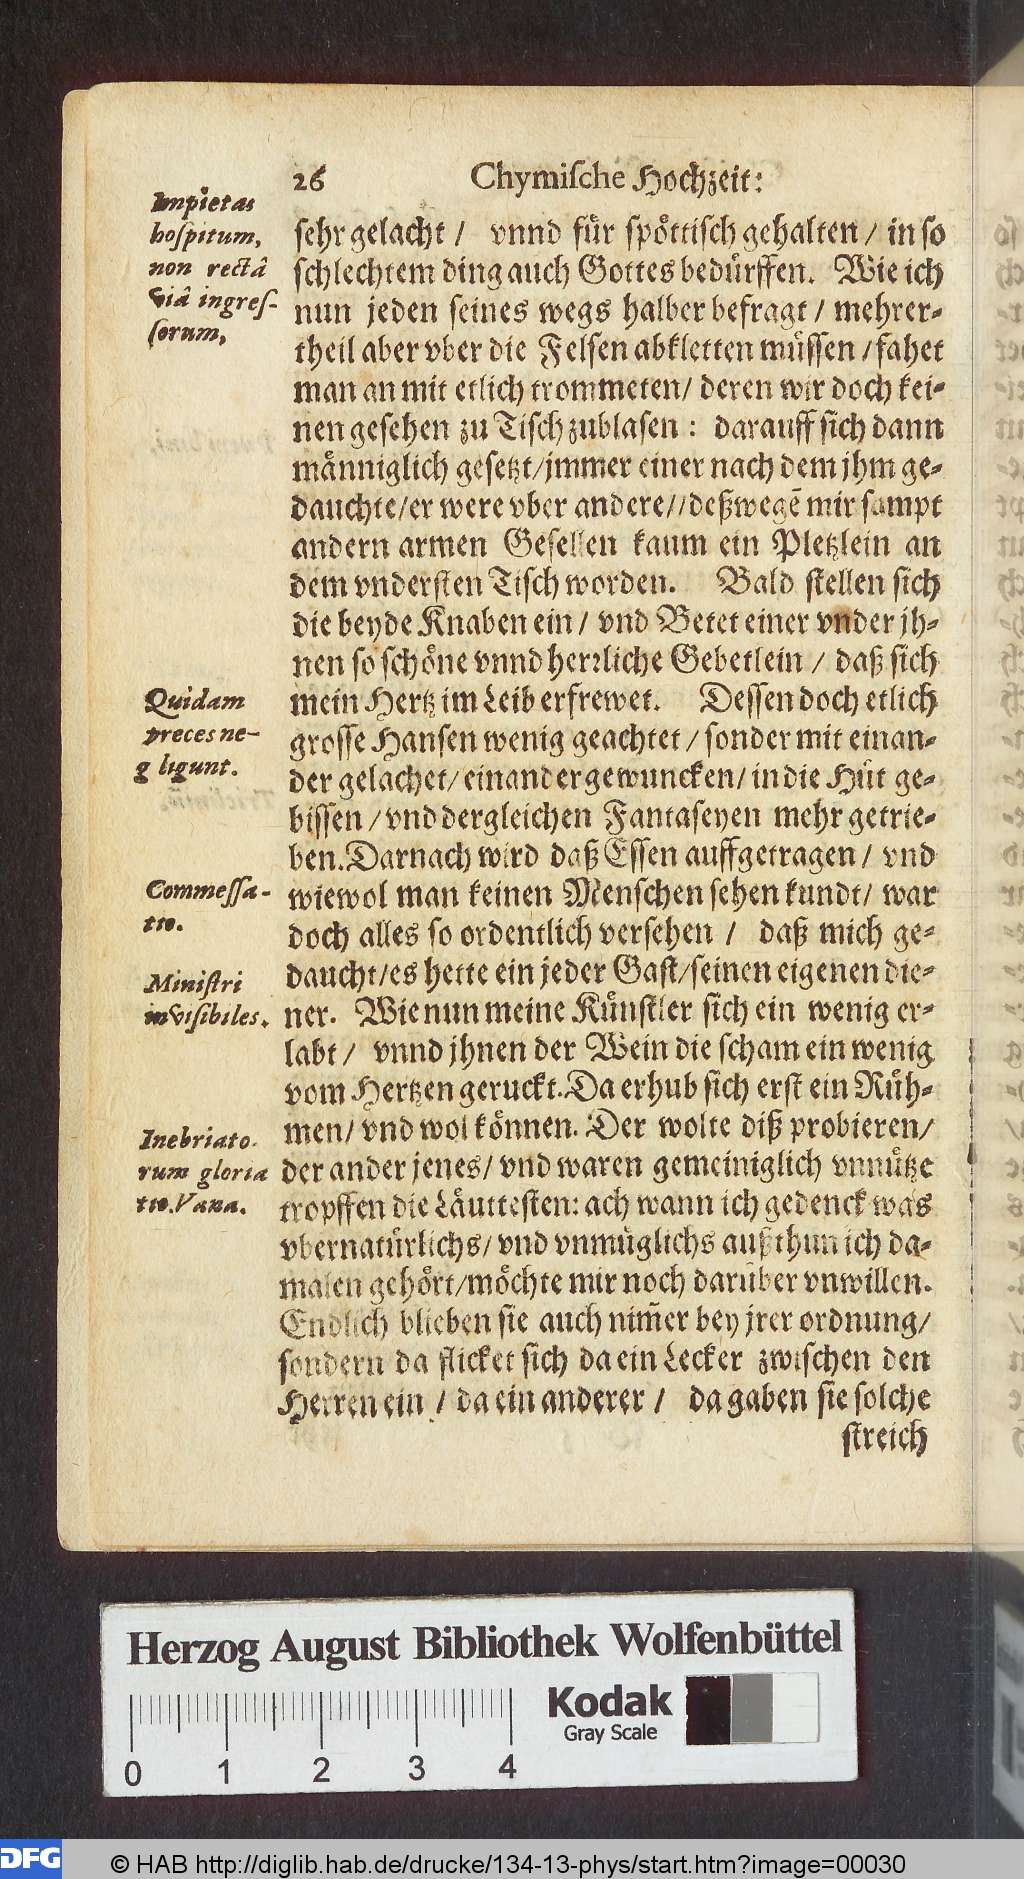 26 Chymische Hochzeit:
Impietas
hospitum,
non rectâ
viâ ingres-
sorum,
sehr gelacht / vnnd für spöttisch gehalten / in so
schlechtem ding auch Gottes bedürffen. Wie ich
nun jeden seines wegs halber befragt / mehrer-
theil aber vber die Felsen abkletten müssen / fahet
man an mit etlich trommeten / deren wir doch kei-
nen gesehen zu Tisch zublasen : darauff sich dann
männiglich gesetzt / jmmer einer nach dem jhm ge-
dauchte / er were vber andere / / deßwegē mir sampt
andern armen Gesellen kaum ein Pletzlein an
dem vndersten Tisch worden. Bald stellen sich
die beyde Knaben ein / vnd Betet einer vnder jh-
nen so schöne vnnd herrliche Gebetlein / daß sich
Quidam
preces ne-
gligunt.
mein Hertz im Leib erfrewet. Dessen doch etlich
grosse Hansen wenig geachtet / sonder mit einan-
der gelachet / einander gewuncken / in die Hüt ge-
bissen / vnd dergleichen Fantaseyen mehr getrie-
ben. Darnach wird daß Essen auffgetragen / vnd
Commessa-
tio.
wiewol man keinen Menschen sehen kundt / war
doch alles so ordentlich versehen / daß mich ge-
Ministri
invisibiles.
daucht / es hette ein jeder Gast / seinen eigenen die-
ner. Wie nun meine Künstler sich ein wenig er-
labt / vnnd jhnen der Wein die scham ein wenig
vom Hertzen geruckt. Da erhub sich erst ein Rüh-
Inebriato-
rum gloria
tio. Vana.
men / vnd wol können. Der wolte diß probieren /
der ander jenes / vnd waren gemeiniglich vnnütze
tropffen die Läuttesten: ach wann ich gedenck was
vbernatürlichs / vnd vnmüglichs außthun ich da-
malen gehört / möchte mir noch darüber vnwillen.
Endlich blieben sie auch nim̄er bey jrer ordnung /
sondern da flicket sich da ein Lecker zwischen den
Herren ein / da ein anderer / da gaben sie solche
streich
Herzog August Bibliothek Wolfenbüttel
Kodak
Gray Scale
0 1 2 3 4
DFG © HAB http://diglib.hab.de/drucke/134-13-phys/start.htm?image=00030